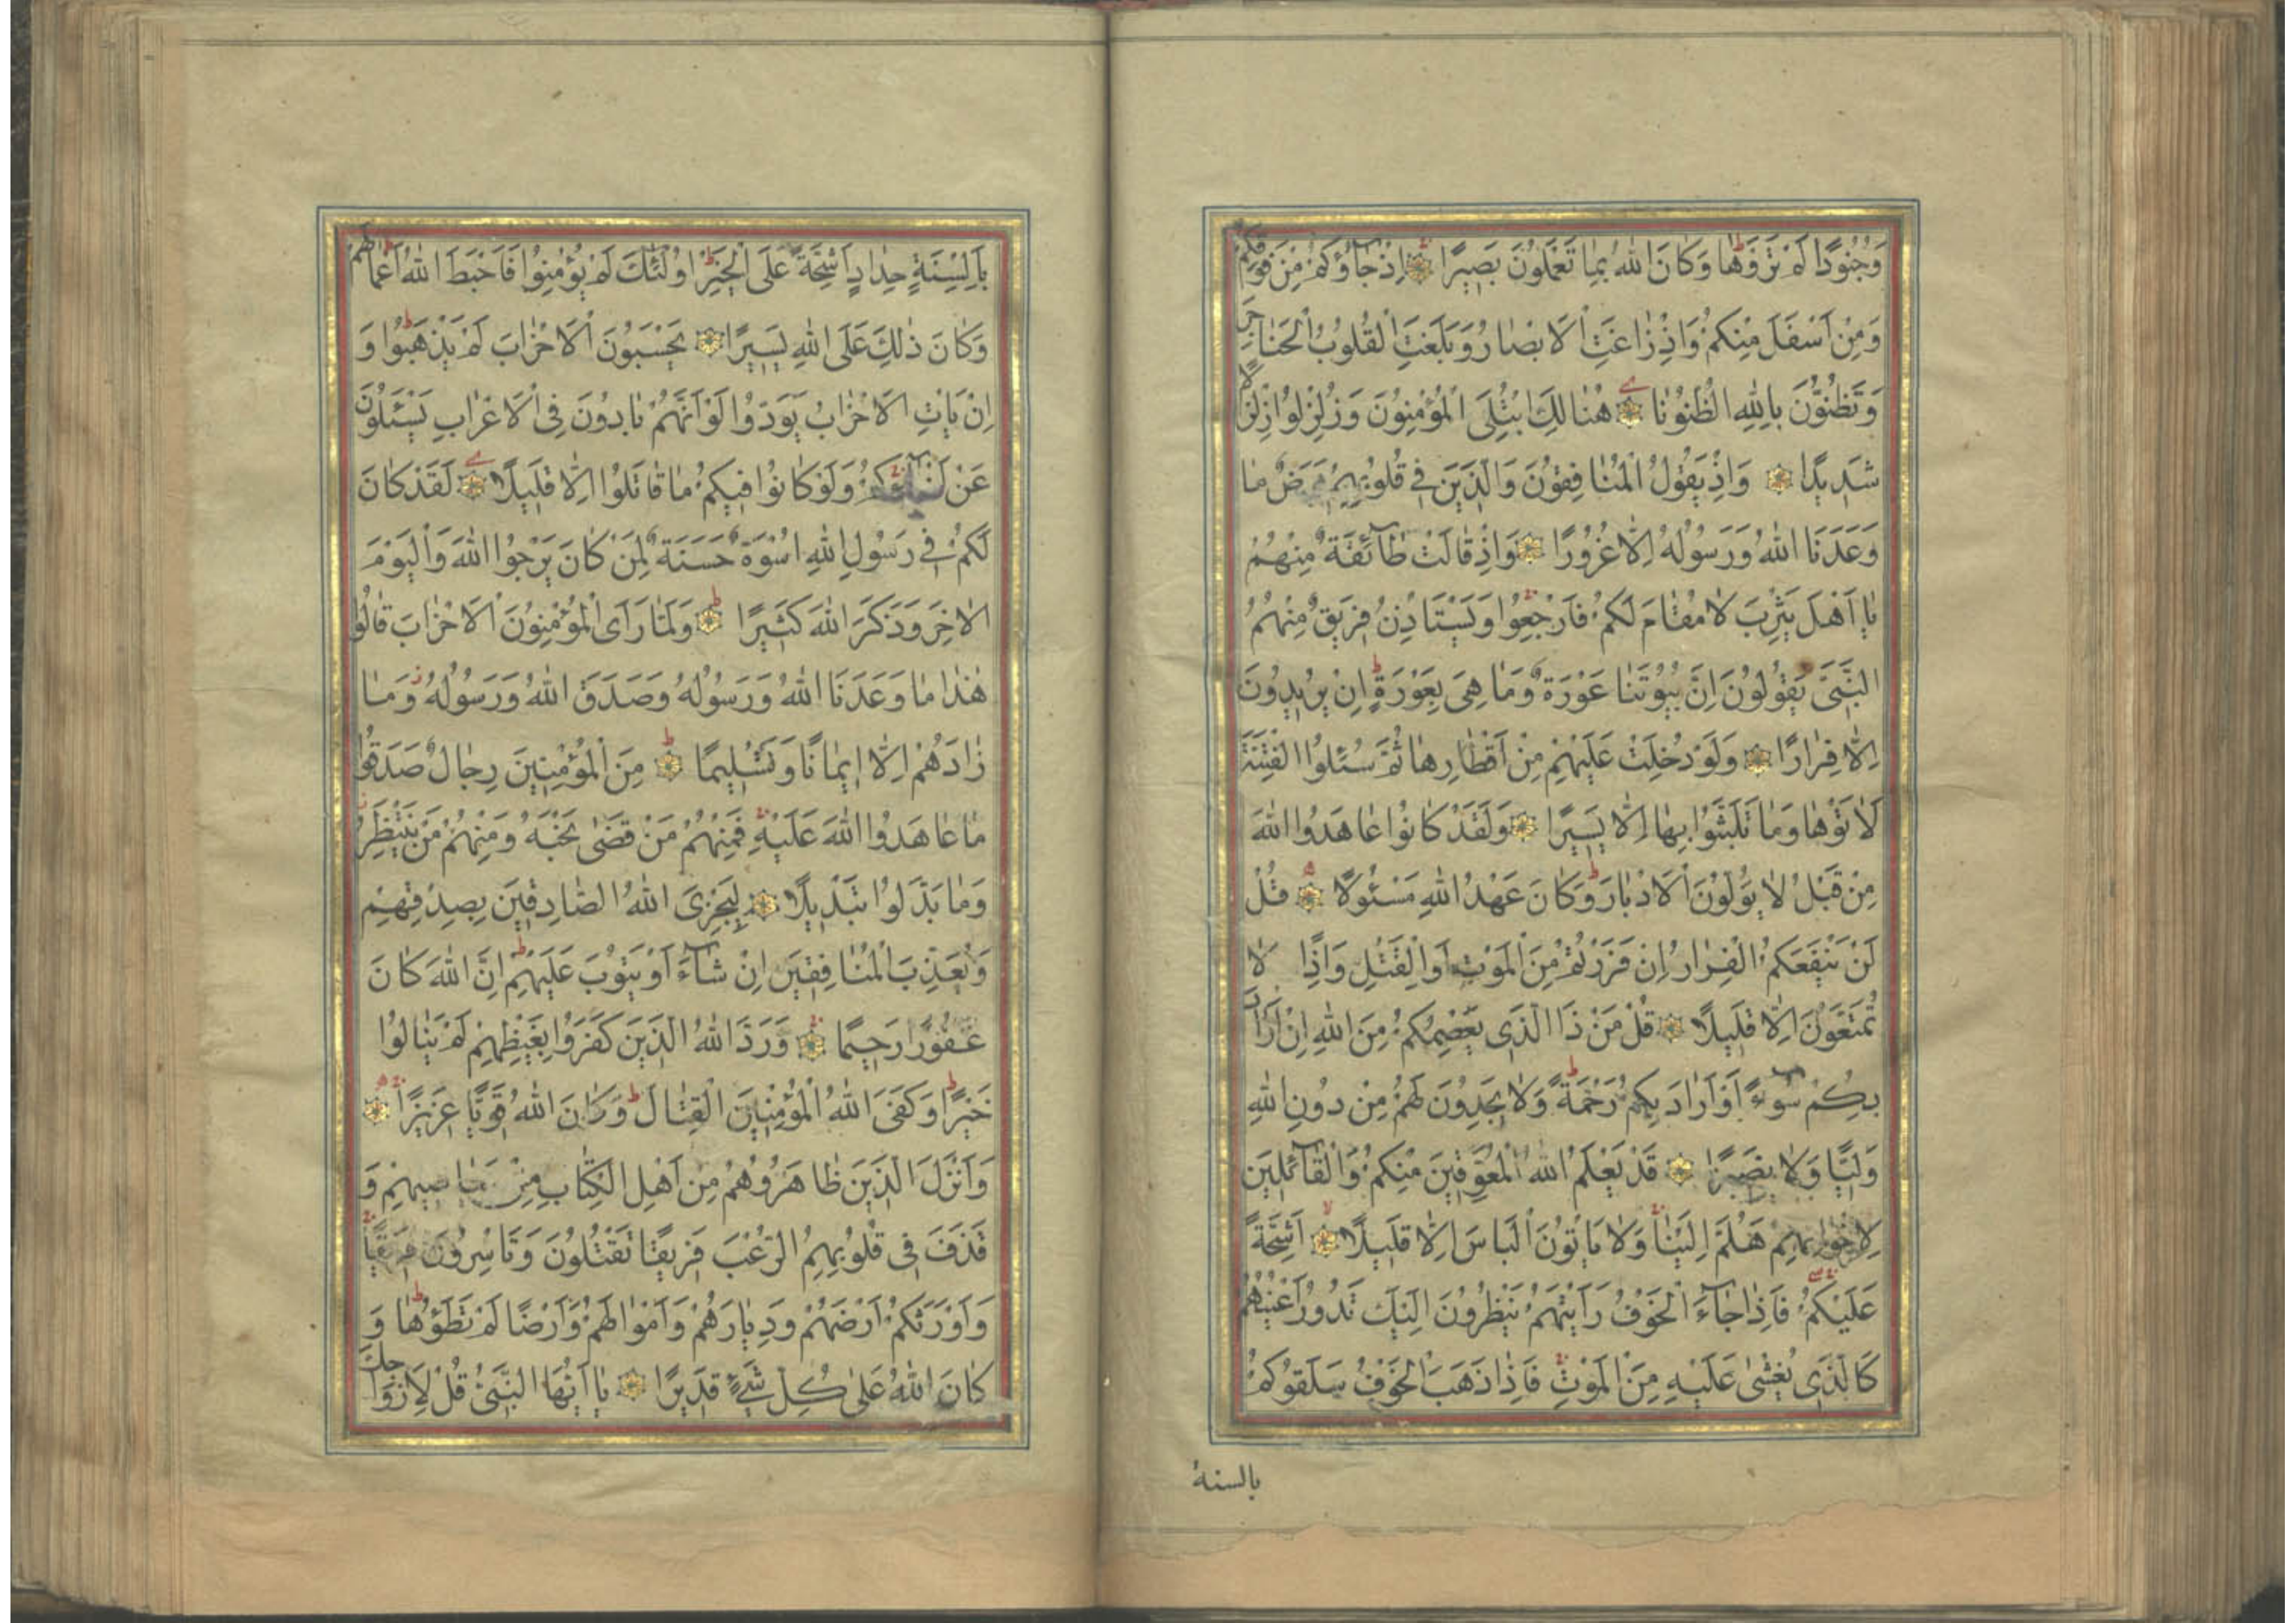 وَجُنُودًا لَمْ تَرَوْهَا وَكَانَ اللهُ بِمَا تَعْمَلُونَ بَصِيرًا اِذْ جَآؤُكُمْ مِنْ فَوْقِكُمْ
وَمِنْ اَسْفَلَ مِنْكُمْ وَاِذْ زَاغَتِ الْاَبْصَارُ وَبَلَغَتِ الْقُلُوبُ الْحَنَاجِرَ
وَتَظُنُّونَ بِاللهِ الظُّنُونَا هُنَالِكَ ابْتُلِيَ الْمُؤْمِنُونَ وَزُلْزِلُوا زِلْزَالًا
شَدِيدًا وَاِذْ يَقُولُ الْمُنَافِقُونَ وَالَّذِينَ فِي قُلُوبِهِمْ مَرَضٌ مَا
وَعَدَنَا اللهُ وَرَسُولُهُ اِلَّا غُرُورًا وَاِذْ قَالَتْ طَآئِفَةٌ مِنْهُمْ
يَا اَهْلَ يَثْرِبَ لَا مُقَامَ لَكُمْ فَارْجِعُوا وَيَسْتَاْذِنُ فَرِيقٌ مِنْهُمُ
النَّبِيَّ يَقُولُونَ اِنَّ بُيُوتَنَا عَوْرَةٌ وَمَا هِيَ بِعَوْرَةٍ اِنْ يُرِيدُونَ
اِلَّا فِرَارًا وَلَوْ دُخِلَتْ عَلَيْهِمْ مِنْ اَقْطَارِهَا ثُمَّ سُئِلُوا الْفِتْنَةَ
لَاٰتَوْهَا وَمَا تَلَبَّثُوا بِهَا اِلَّا يَسِيرًا وَلَقَدْ كَانُوا عَاهَدُوا اللهَ
مِنْ قَبْلُ لَا يُوَلُّونَ الْاَدْبَارَ وَكَانَ عَهْدُ اللهِ مَسْئُولًا قُلْ
لَنْ يَنْفَعَكُمُ الْفِرَارُ اِنْ فَرَرْتُمْ مِنَ الْمَوْتِ اَوِ الْقَتْلِ وَاِذًا لَا
تُمَتَّعُونَ اِلَّا قَلِيلًا قُلْ مَنْ ذَا الَّذِي يَعْصِمُكُمْ مِنَ اللهِ اِنْ اَرَادَ
بِكُمْ سُوءً اَوْ اَرَادَ بِكُمْ رَحْمَةً وَلَا يَجِدُونَ لَهُمْ مِنْ دُونِ اللهِ
وَلِيًّا وَلَا نَصِيرًا قَدْ يَعْلَمُ اللهُ الْمُعَوِّقِينَ مِنْكُمْ وَالْقَآئِلِينَ
لِاِخْوَانِهِمْ هَلُمَّ اِلَيْنَا وَلَا يَاْتُونَ الْبَاْسَ اِلَّا قَلِيلًا اَشِحَّةً
عَلَيْكُمْ فَاِذَا جَآءَ الْخَوْفُ رَاَيْتَهُمْ يَنْظُرُونَ اِلَيْكَ تَدُورُ اَعْيُنُهُمْ
كَالَّذِي يُغْشٰى عَلَيْهِ مِنَ الْمَوْتِ فَاِذَا ذَهَبَ الْخَوْفُ سَلَقُوكُمْ
بالسنة
بِاَلْسِنَةٍ حِدَادٍ اَشِحَّةً عَلَى الْخَيْرِ اُولٰئِكَ لَمْ يُؤْمِنُوا فَاَحْبَطَ اللهُ اَعْمَالَهُمْ
وَكَانَ ذٰلِكَ عَلَى اللهِ يَسِيرًا يَحْسَبُونَ الْاَحْزَابَ لَمْ يَذْهَبُوا وَ
اِنْ يَاْتِ الْاَحْزَابُ يَوَدُّوا لَوْ اَنَّهُمْ بَادُونَ فِي الْاَعْرَابِ يَسْئَلُونَ
عَنْ اَنْبَآئِكُمْ وَلَوْ كَانُوا فِيكُمْ مَا قَاتَلُوا اِلَّا قَلِيلًا لَقَدْ كَانَ
لَكُمْ فِي رَسُولِ اللهِ اُسْوَةٌ حَسَنَةٌ لِمَنْ كَانَ يَرْجُوا اللهَ وَالْيَوْمَ
الْاٰخِرَ وَذَكَرَ اللهَ كَثِيرًا وَلَمَّا رَاَى الْمُؤْمِنُونَ الْاَحْزَابَ قَالُوا
هٰذَا مَا وَعَدَنَا اللهُ وَرَسُولُهُ وَصَدَقَ اللهُ وَرَسُولُهُ وَمَا
زَادَهُمْ اِلَّا اِيمَانًا وَتَسْلِيمًا مِنَ الْمُؤْمِنِينَ رِجَالٌ صَدَقُوا
مَا عَاهَدُوا اللهَ عَلَيْهِ فَمِنْهُمْ مَنْ قَضٰى نَحْبَهُ وَمِنْهُمْ مَنْ يَنْتَظِرُ
وَمَا بَدَّلُوا تَبْدِيلًا لِيَجْزِيَ اللهُ الصَّادِقِينَ بِصِدْقِهِمْ
وَيُعَذِّبَ الْمُنَافِقِينَ اِنْ شَآءَ اَوْ يَتُوبَ عَلَيْهِمْ اِنَّ اللهَ كَانَ
غَفُورًا رَحِيمًا وَرَدَّ اللهُ الَّذِينَ كَفَرُوا بِغَيْظِهِمْ لَمْ يَنَالُوا
خَيْرًا وَكَفَى اللهُ الْمُؤْمِنِينَ الْقِتَالَ وَكَانَ اللهُ قَوِيًّا عَزِيزًا
وَاَنْزَلَ الَّذِينَ ظَاهَرُوهُمْ مِنْ اَهْلِ الْكِتَابِ مِنْ صَيَاصِيهِمْ وَ
قَذَفَ فِي قُلُوبِهِمُ الرُّعْبَ فَرِيقًا تَقْتُلُونَ وَتَاْسِرُونَ فَرِيقًا
وَاَوْرَثَكُمْ اَرْضَهُمْ وَدِيَارَهُمْ وَاَمْوَالَهُمْ وَاَرْضًا لَمْ تَطَؤُهَا وَ
كَانَ اللهُ عَلٰى كُلِّ شَيْءٍ قَدِيرًا يَا اَيُّهَا النَّبِيُّ قُلْ لِاَزْوَاجِكَ